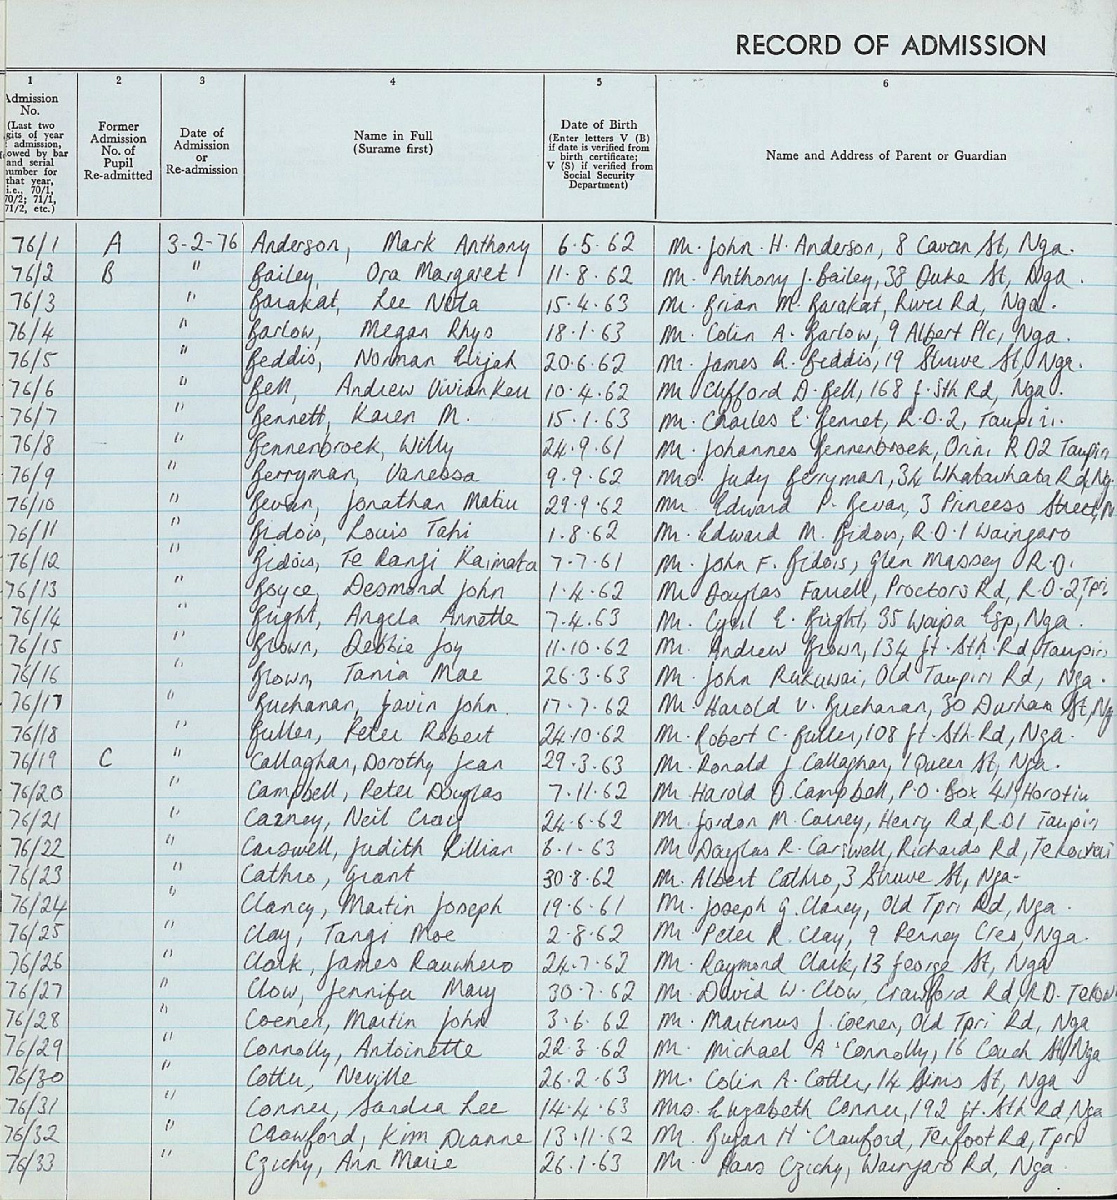 RECORD OF ADMISSION
1 2 3 4 5 6
Admission No. (Last two digits of year of admission, followed by bar and serial number for that year, i.e., 70/1, 70/2; 71/1, 71/2, etc.)
Former Admission No. of Pupil Re-admitted
Date of Admission or Re-admission
Name in Full (Surame first)
Date of Birth (Enter letters V (B) if date is verified from birth certificate; V (S) if verified from Social Security Department)
Name and Address of Parent or Guardian
76/1 A 3-2-76 Anderson, Mark Anthony 6.5.62 Mr. John H. Anderson, 8 Cavan St, Nga.
76/2 B " Bailey, Ora Margaret 11.8.62 Mr. Anthony J. Bailey, 38 Duke St, Nga.
76/3 " Barakat, Lee Nola 15.4.63 Mr. Brian M. Barakat, River Rd, Nga.
76/4 " Barlow, Megan Rhys 18.1.63 Mr. Colin A. Barlow, 9 Albert Plc, Nga.
76/5 " Beddis, Norman Elijah 20.6.62 Mr. James A. Beddis, 19 Struwe St, Nga.
76/6 " Bell, Andrew Vivian Kerr 10.4.62 Mr Clifford D. Bell, 168 Sth Rd, Nga.
76/7 " Bennett, Karen M. 15.1.63 Mr. Charles E. Bennet, R.D.2, Taupiri.
76/8 " Bennenbroek, Willy 24.9.61 Mr. Johannes Bennenbroek, Orini R D2 Taupiri
76/9 " Berryman, Vanessa 9.9.62 Mrs Judy Berryman, 34 Whatawhata Rd, Ng.
76/10 " Bevan, Jonathan Matiu 29.9.62 Mr Edward P. Bevan, 3 Princess Street, N
76/11 " Bidois, Louis Tahi 1.8.62 Mr. Edward M. Bidois, R.D.1 Waingaro
76/12 " Bidois, Te Rangi Kaimata 7.7.61 Mr. John F. Bidois, Glen Massey R.D.
76/13 " Boyce, Desmond John 1.4.62 Mr Douglas Farrell, Proctors Rd, R.D.2, Tpri
76/14 " Bright, Angela Annette 7.4.63 Mr. Cyril E. Bright, 35 Waipa Esp, Nga.
76/15 " Brown, Debbie Joy 11.10.62 Mr. Andrew Brown, 134 Gt. Sth Rd, Taupiri
76/16 " Brown, Tania Mae 26.3.63 Mr. John Rukuwai, Old Taupiri Rd, Nga.
76/17 " Buchanan, Gavin John. 17.7.62 Mr Harold V. Buchanan, 30 Durham St, Ng
76/18 " Butler, Peter Robert 24.10.62 Mr. Robert C. Butler, 108 Gt. Sth Rd, Nga.
76/19 C " Callaghan, Dorothy Jean 29.3.63 Mr. Ronald J Callaghan, 1 Queen St, Nga.
76/20 " Campbell, Peter Douglas 7.11.62 Mr. Harold D. Campbell, P.O. Box 41, Horotiu
76/21 " Carney, Neil Craig 24.6.62 Mr. Gordon M. Carney, Henry Rd, R.D1 Taupiri
76/22 " Carswell, Judith Lillian 6.1.63 Mr Douglas R. Carswell, Richards Rd, Tekowhai
76/23 " Cathro, Grant 30.8.62 Mr. Albert Cathro, 3 Struwe St, Nga-
76/24 " Clancy, Martin Joseph 19.6.61 Mr. Joseph G. Clancy, Old Tpri Rd, Nga.
76/25 " Clay, Tangi Moe 2.8.62 Mr Peter R. Clay, 9 Penney Cres, Nga.
76/26 " Clark, James Rauwhero 24.7.62 Mr. Raymond Clark, 13 George St, Nga
76/27 " Clow, Jennifer Mary 30.7.62 Mr. David W. Clow, Crawford Rd, R.D. Tekow
76/28 " Coener, Martin John 3.6.62 Mr. Martinus J. Coener, Old Tpri Rd, Nga
76/29 " Connolly, Antoinette 22.3.62 Mr. Michael A Connolly, 16 Couch St, Nga
76/30 " Cotter, Neville 26.2.63 Mr. Colin A. Cotter, 14 Sims St, Nga
76/31 " Conner, Sandra Lee 14.4.63 Mrs. Elizabeth Conner, 192 Gt. Sth Rd, Nga
76/32 " Crawford, Kim Dianne 13.11.62 Mr. Bryan H Crawford, Tenfoot Rd, Tpri
76/33 " Czichy, Ann Marie 26.1.63 Mr. Hans Czichy, Waingaro Rd, Nga.